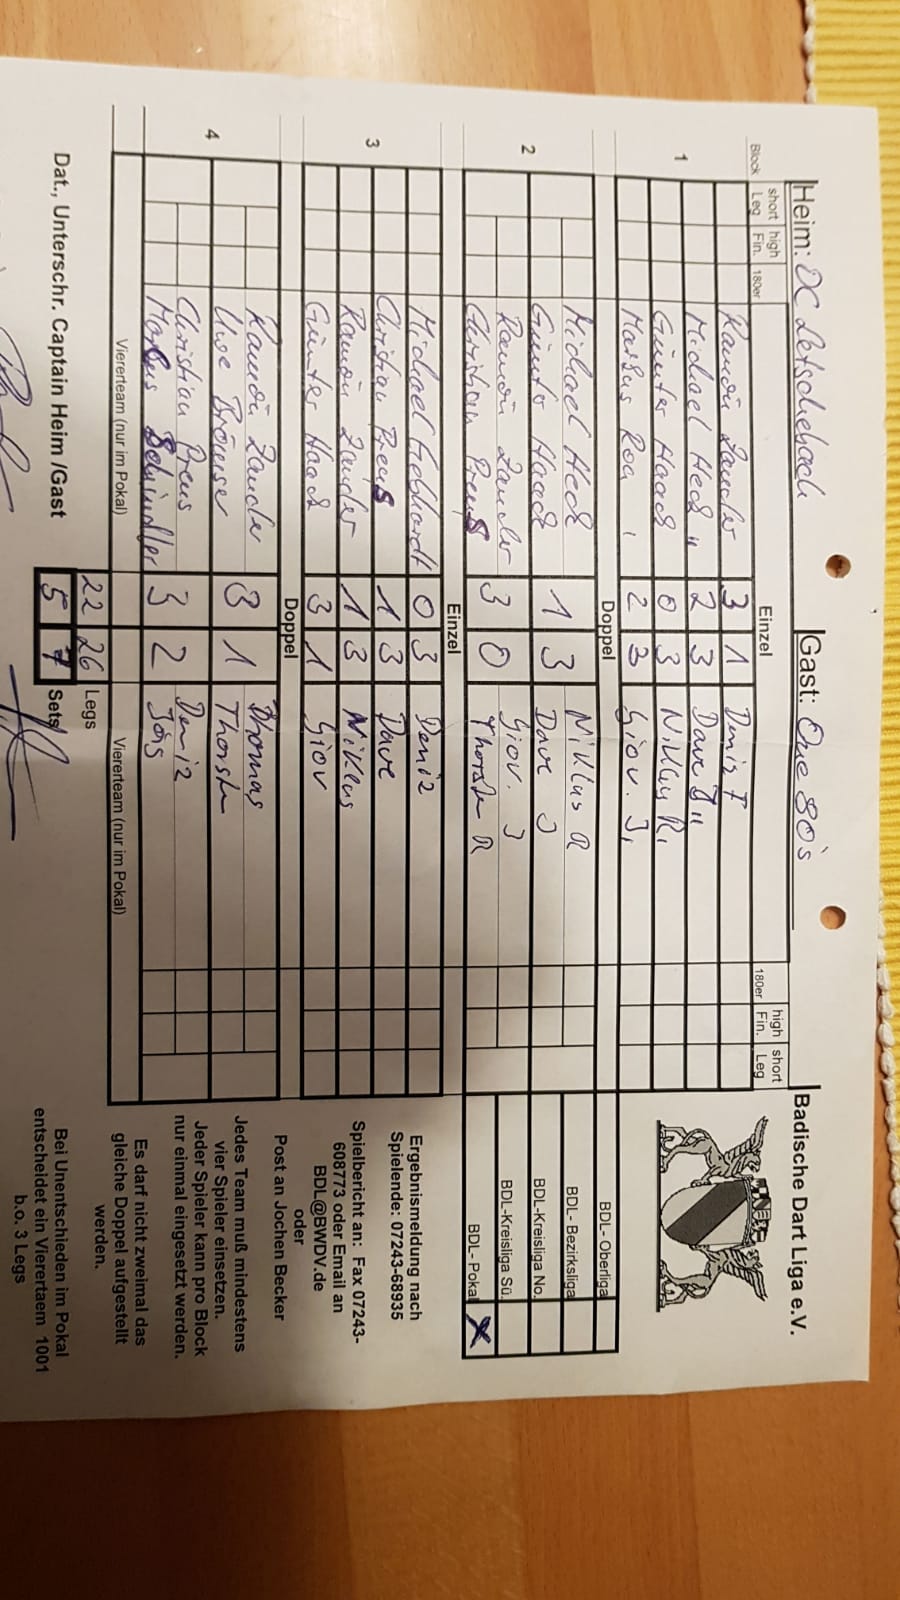 Heim: DC Letschebach Gast: One 80's Badische Dart Liga e.V.
Block short Leg high Fin. 180er Einzel 180er high Fin. short Leg
1 Ramon Zander 3 1 Deniz
Michael Heck 2 3 Dave
Günter Haack 0 3 Niklas R.
Markus 2 3 Giov. J.
Doppel
2 Michael Heck
Günter Haack 1 3 Niklas R
Dave J
Ramon Zander
Christian Preus 3 0 Giov. J
Thorsten R
Einzel
3 Michael 0 3 Deniz
Christian Preus 1 3 Dave
Ramon Zander 1 3 Niklas
Günter Haack 3 1 Giov
Doppel
4 Ramon Zander
Uwe 3 1 Thomas
Thorsten
Christian Preus
Markus Schindler 3 2 Deniz
Jörg
Viererteam (nur im Pokal) Viererteam (nur im Pokal)
22 26 Legs
Dat., Unterschr. Captain Heim /Gast 5 7 Sets
BDL- Oberliga
BDL- Bezirksliga
BDL-Kreisliga No.
BDL-Kreisliga Sü.
BDL- Pokal X
Ergebnismeldung nach
Spielende: 07243-68935
Spielbericht an: Fax 07243-
608773 oder Email an
BDL@BWDV.de
oder
Post an Jochen Becker
Jedes Team muß mindestens
vier Spieler einsetzen.
Jeder Spieler kann pro Block
nur einmal eingesetzt werden.
Es darf nicht zweimal das
gleiche Doppel aufgestellt
werden.
Bei Unentschieden im Pokal
entscheidet ein Vierertaem 1001
b.o. 3 Legs